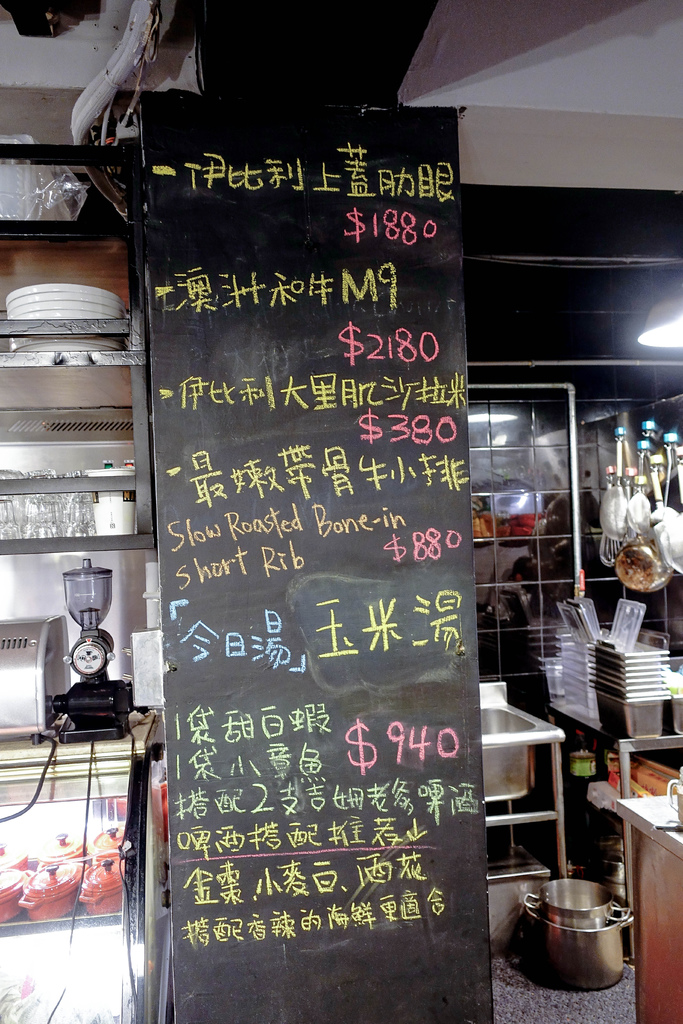 - 伊比利上蓋肋眼
$1880
- 澳洲和牛M9
$2180
- 伊比利大里肌沙拉米
$380
- 最嫩帶骨牛小排
Slow Roasted Bone-in
short Rib
$880
「今日湯」玉米湯
1袋甜白蝦
1袋小章魚
$940
搭配2支吉姆老爹啤酒
啤酒搭配推荐↓
金棗、小麥白、酒花
搭配香辣的海鮮更適合